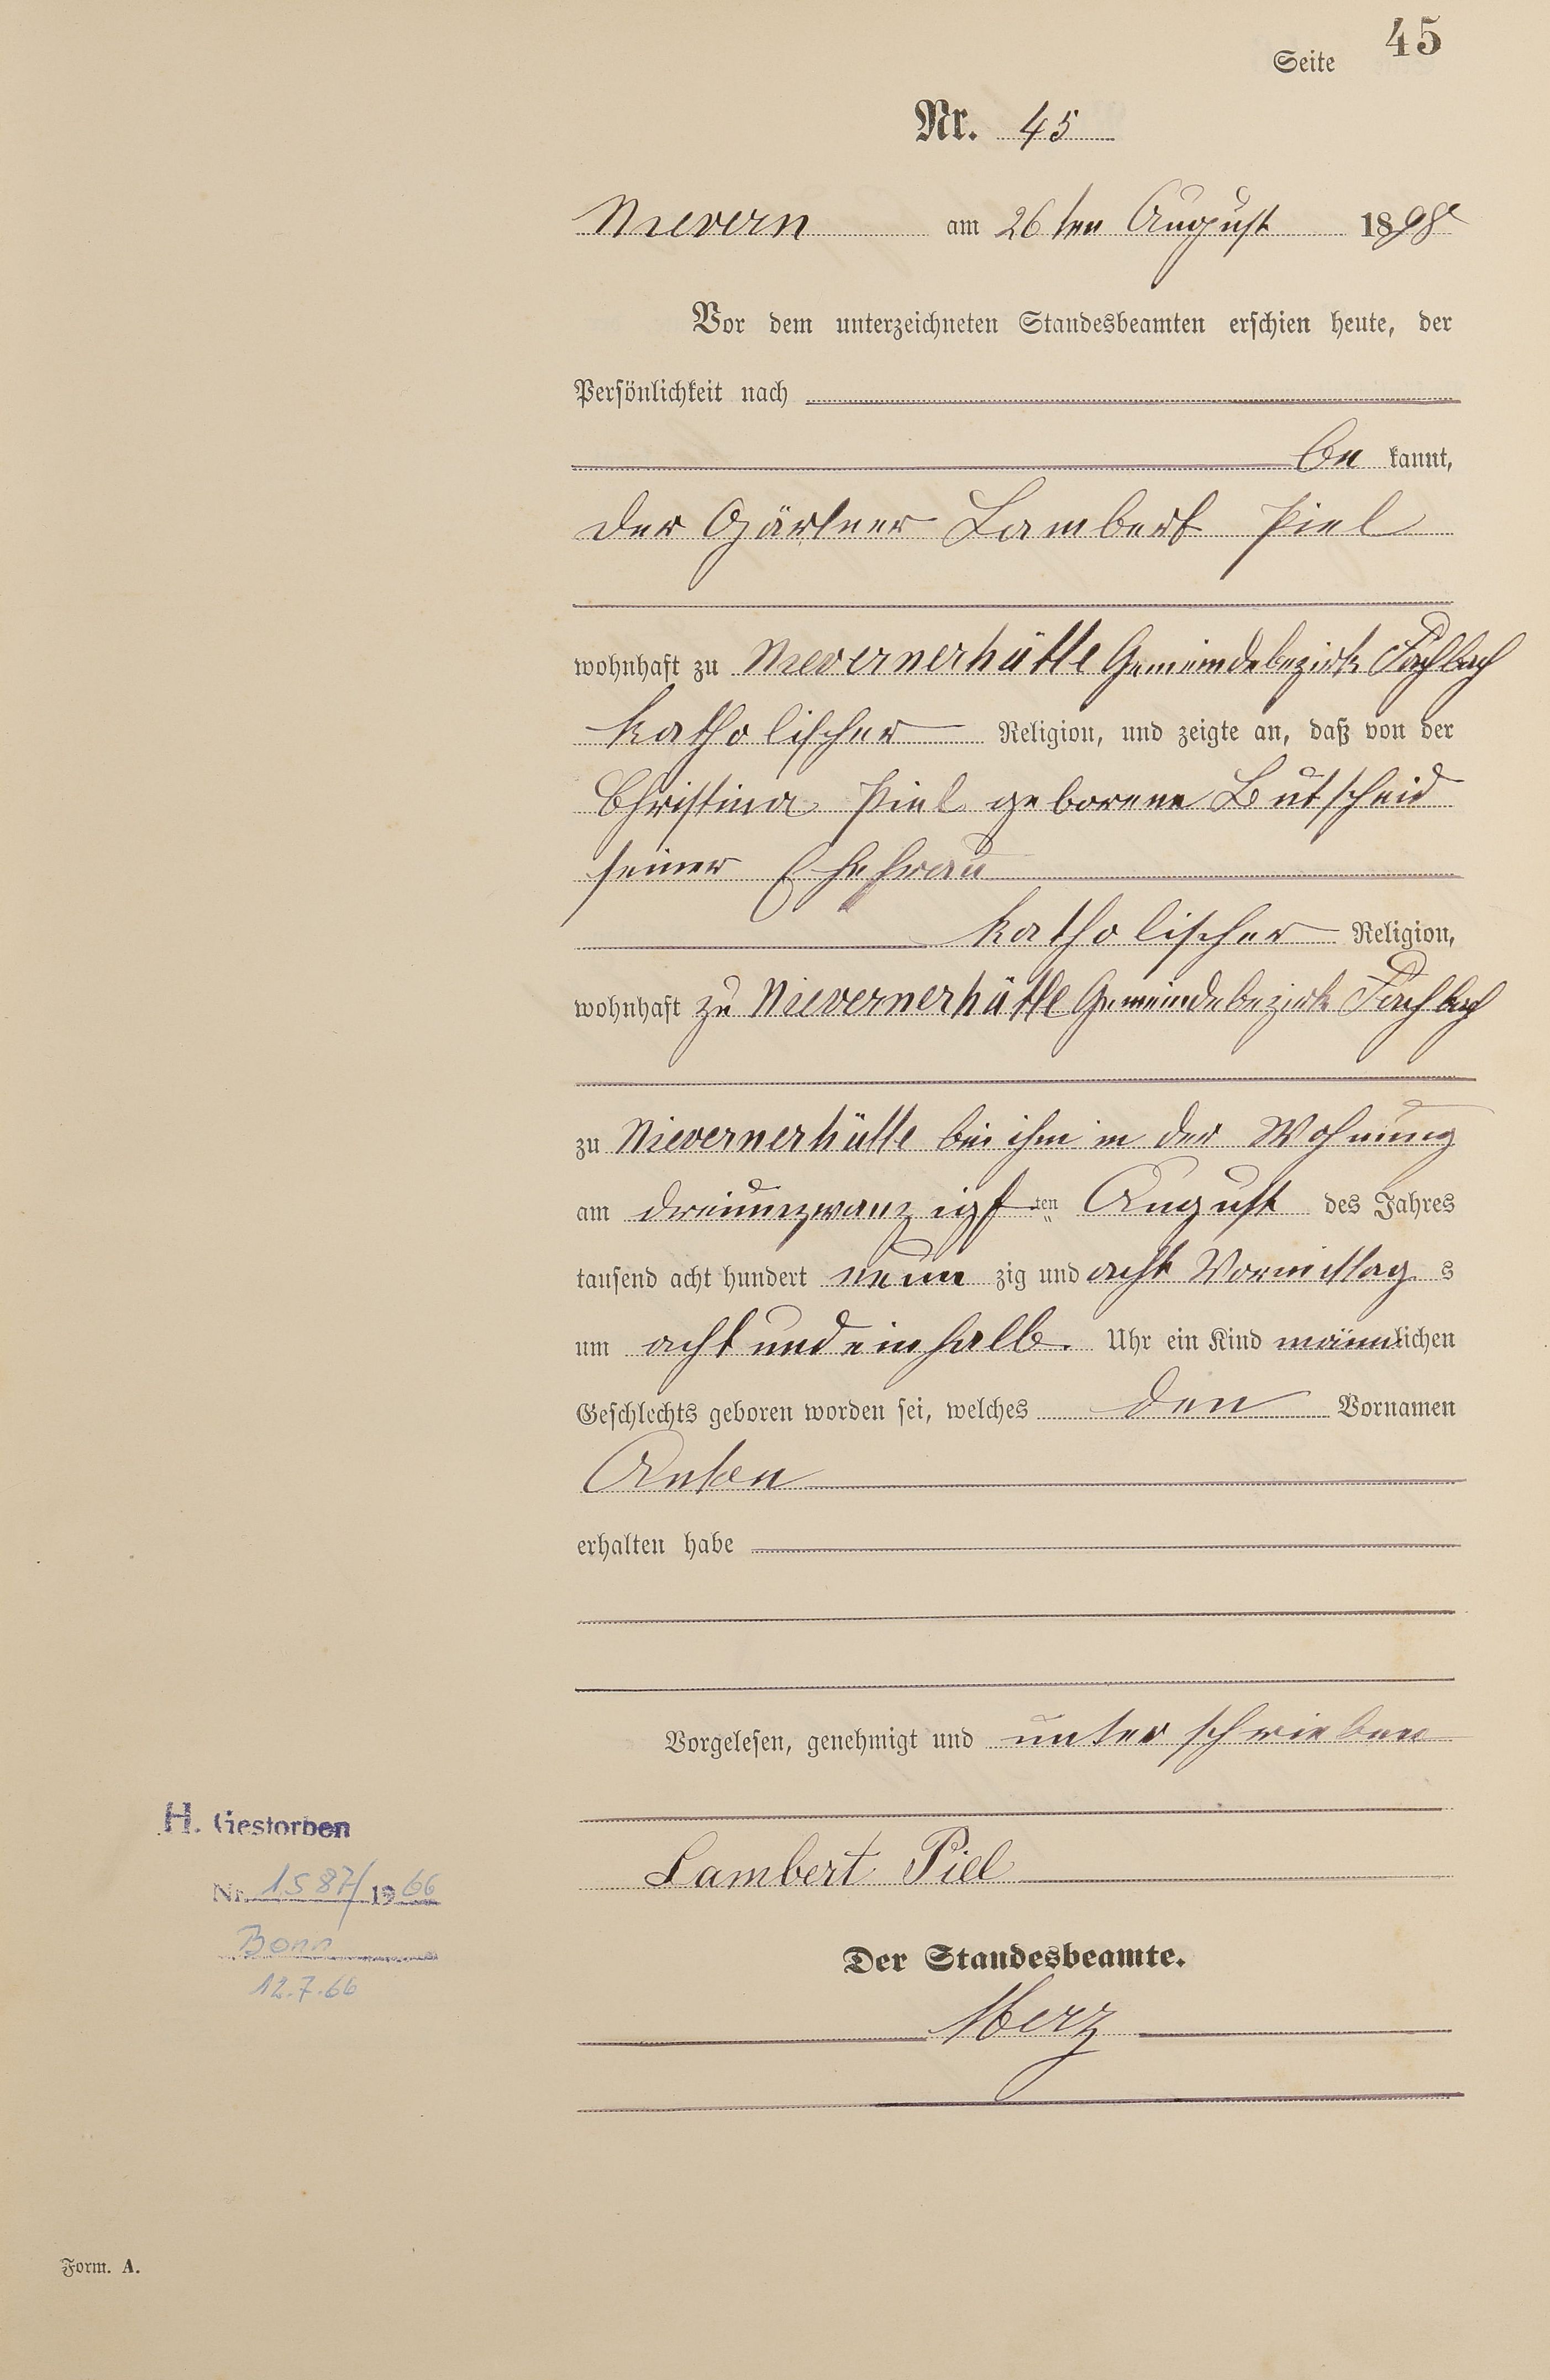 Seite 45
Nr. 45
Nievern am 26ten August 1898
Vor dem unterzeichneten Standesbeamten erschien heute, der
Persönlichkeit nach
be kannt,
der Gärtner Lambert Piel
wohnhaft zu Nievernerhütte Gemeindebezirk Fachbach
katholischer Religion, und zeigte an, daß von der
Christina Piel geborene Butscheid
seiner Ehefrau
katholischer Religion,
wohnhaft zu Nievernerhütte Gemeindebezirk Fachbach
zu Nievernerhütte bei ihm in der Wohnung
am dreiunzwanzigsten August des Jahres
tausend acht hundert neun zig und acht Vormittag s
um acht und ein halb Uhr ein Kind männlichen
Geschlechts geboren worden sei, welches den Vornamen
Anton
erhalten habe
Vorgelesen, genehmigt und unterschrieben
Lambert Piel
Der Standesbeamte.
Merz
H. Gestorben
Nr. 1587/1966
Bonn
12.7.66
Form. A.